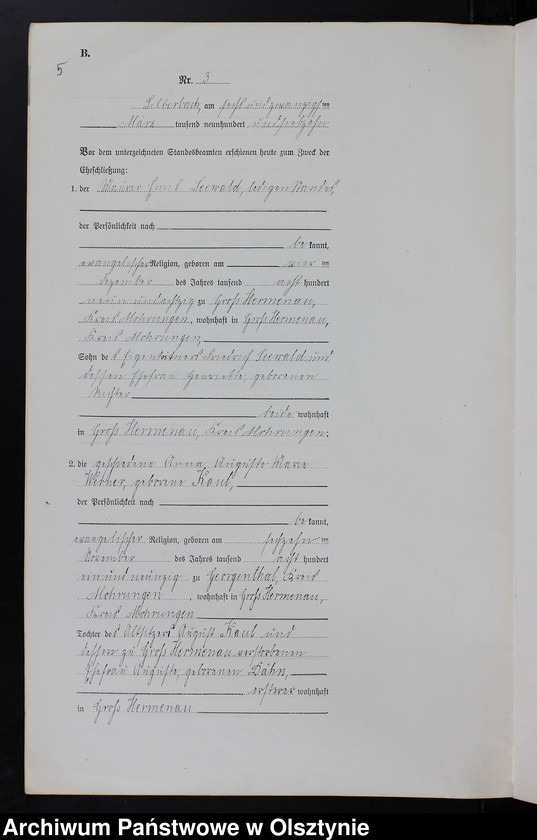 B.
5
Nr. 3
Silberbach, am sechs und zwanzigsten
März tausend neunhundert und siebzehn
Vor dem unterzeichneten Standesbeamten erschienen heute zum Zweck der
Eheschließung:
1. der Maurer Emil Seewald, ledigen Standes,
der Persönlichkeit nach
be kannt,
evangelischer Religion, geboren am vier ten
Dezember des Jahres tausend acht hundert
neun und achtzig zu Groß Hermenau,
Kreis Mohrungen, wohnhaft in Groß Hermenau,
Kreis Mohrungen,
Sohn des Eigentümers Friedrich Seewald und
dessen Ehefrau Henriette, geborenen
beide wohnhaft
in Groß Hermenau, Kreis Mohrungen;
2. die geschiedene Anna Auguste Marie
geborene Kaul,
der Persönlichkeit nach
be kannt,
evangelischer Religion, geboren am sechzehn ten
November des Jahres tausend acht hundert
ein und neunzig zu Georgenthal, Kreis
Mohrungen, wohnhaft in Groß Hermenau,
Kreis Mohrungen
Tochter des Altsitzers August Kaul und
dessen zu Groß Hermenau verstorbenen
Ehefrau Auguste, geborenen Dähn,
ersterer wohnhaft
in Groß Hermenau
Archiwum Państwowe w Olsztynie